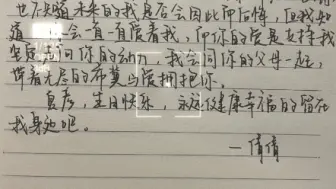 也不知道未来的我是否会因此而后悔，但我知
道 会一直一直爱着我，而你的爱是支持我
走向你的动力，我会同你的父母一起，
带着无尽的 与爱拥抱你。
生日快乐，永远健康幸福的留在
我身边吧。
—倩倩